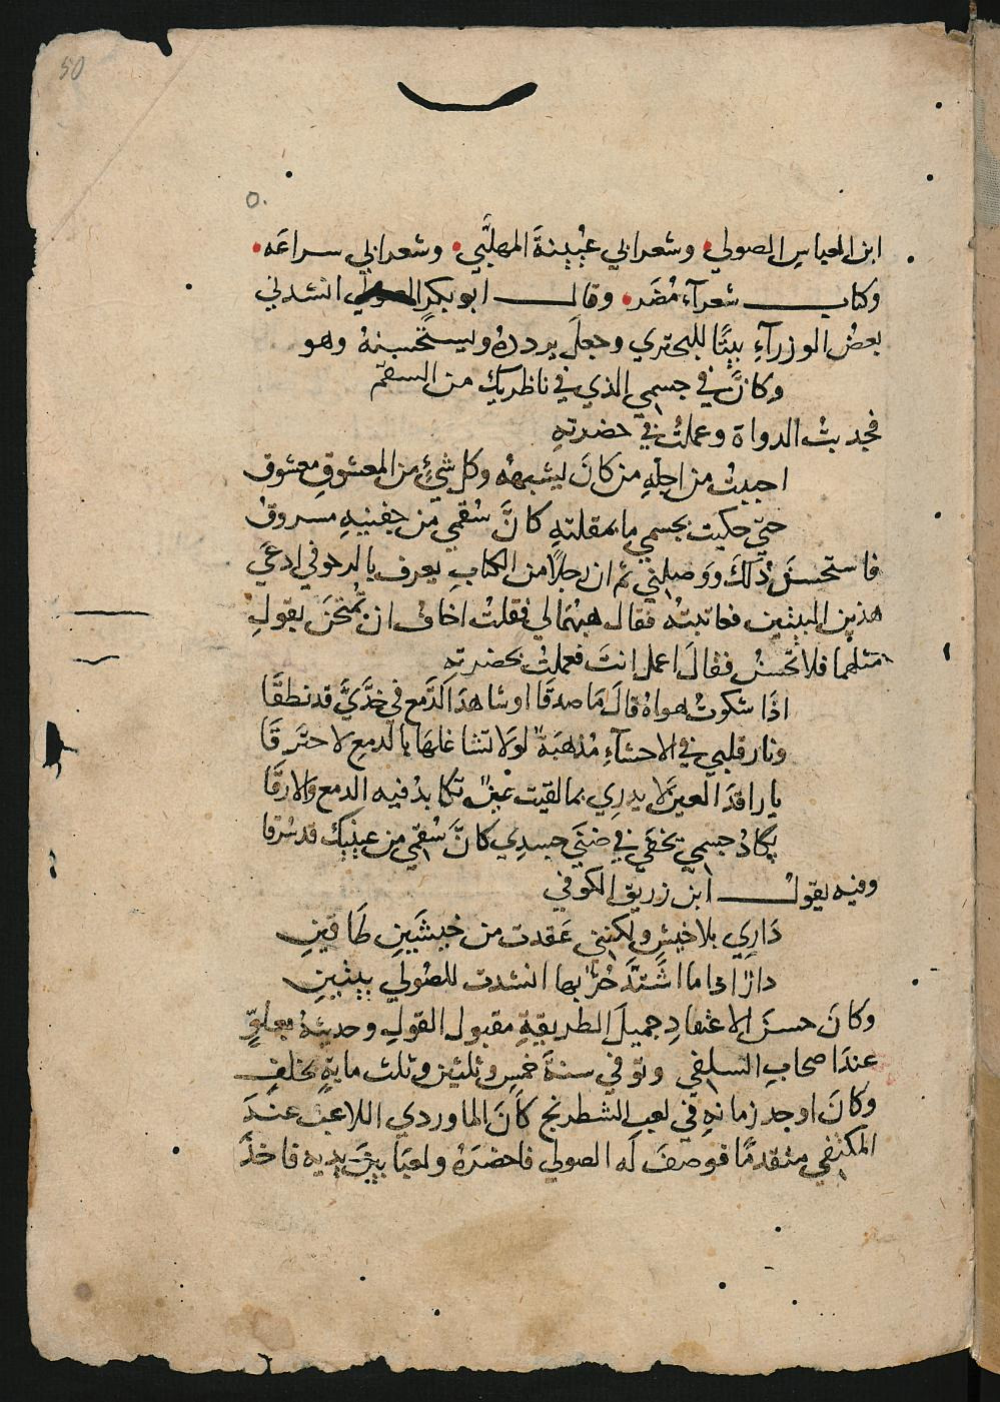 50
٥٠
ابن العباس الصولي وشعر ابي عيينة المهلَّبي وشعر ابي سراعَه
وكتاب شعرآء مُضَر وقال ابو بكر الصولي انشدني
بعضُ الوزرآءِ بيتًا للبحتري وجعلَ يرددهُ ويستحسنهُ وهو
وكانَّ في جسمي الذي في ناظريك من السقمِ
فجدبتُ الدواة وعملتُ في حضرتهِ
احببتُ من اجلهِ من كانَ يشبههُ وكل شيٍ من المعشوقِ معشوق
حتّي حكيت بجسمي ما بمقلتهِ كانَّ سُقمي من جفنيهِ مسروقُ
فاستحسنَ ذلكَ ووصلني ثم ان رجلًا من الكتابِ يعرف بالرحوفي ادعَي
هذين البيتين فعاتبتُه فقال هبهُما لي فقلتُ اخاف ان تُمتحنَ بقولِ
مثلهما فلا تُحسنُ فقالَ اعمل انتَ فعملتُ بحضرتهِ
اذَا شكوتُ هواهُ قالَ مَا صدقَا اوشاهدَ الدَّمع في خدَّيَّ قد نطقَا
ونار قلبي في الاحشآءِ مُذهبَةٌ لولا تشاغلهَا بالدمعِ لاحترقَا
يا راقدَ العين لا يدرِي بما لقيت عينٌ تكابدُ فيه الدمع والارقَا
يكادُ جسمي يخفَي في ضنَي جسدِي كانَّ سُقمي من عينيك قد سُرقا
وفيه يقولُ ابن زريق الكوفي
دَارِي بلا خيشٍ ولكنني عَقدت من خيشَينِ طَاقينِ
دارٌ اذا ما اشتدَّ حُرٌّ بها انشدت للصُولي بيتينِ
وكانَ حسنَ الاعتقادِ جميلَ الطريقةِ مقبول القولِ وحديثهُ بعلوٍّ
عندَ اصحابِ السلفي وتوفي سنةَ خمسٍ وثلثين وثلث مايةٍ
وكانَ اوحد زمانهِ في لعبِ الشطرنج كانَ الماوردي اللاعبُ عندَ
المكتفي متقدمًا فوصفَ لَه الصولي فاحضرَهُ ولعبَا بينَ يديهِ فاخذَ